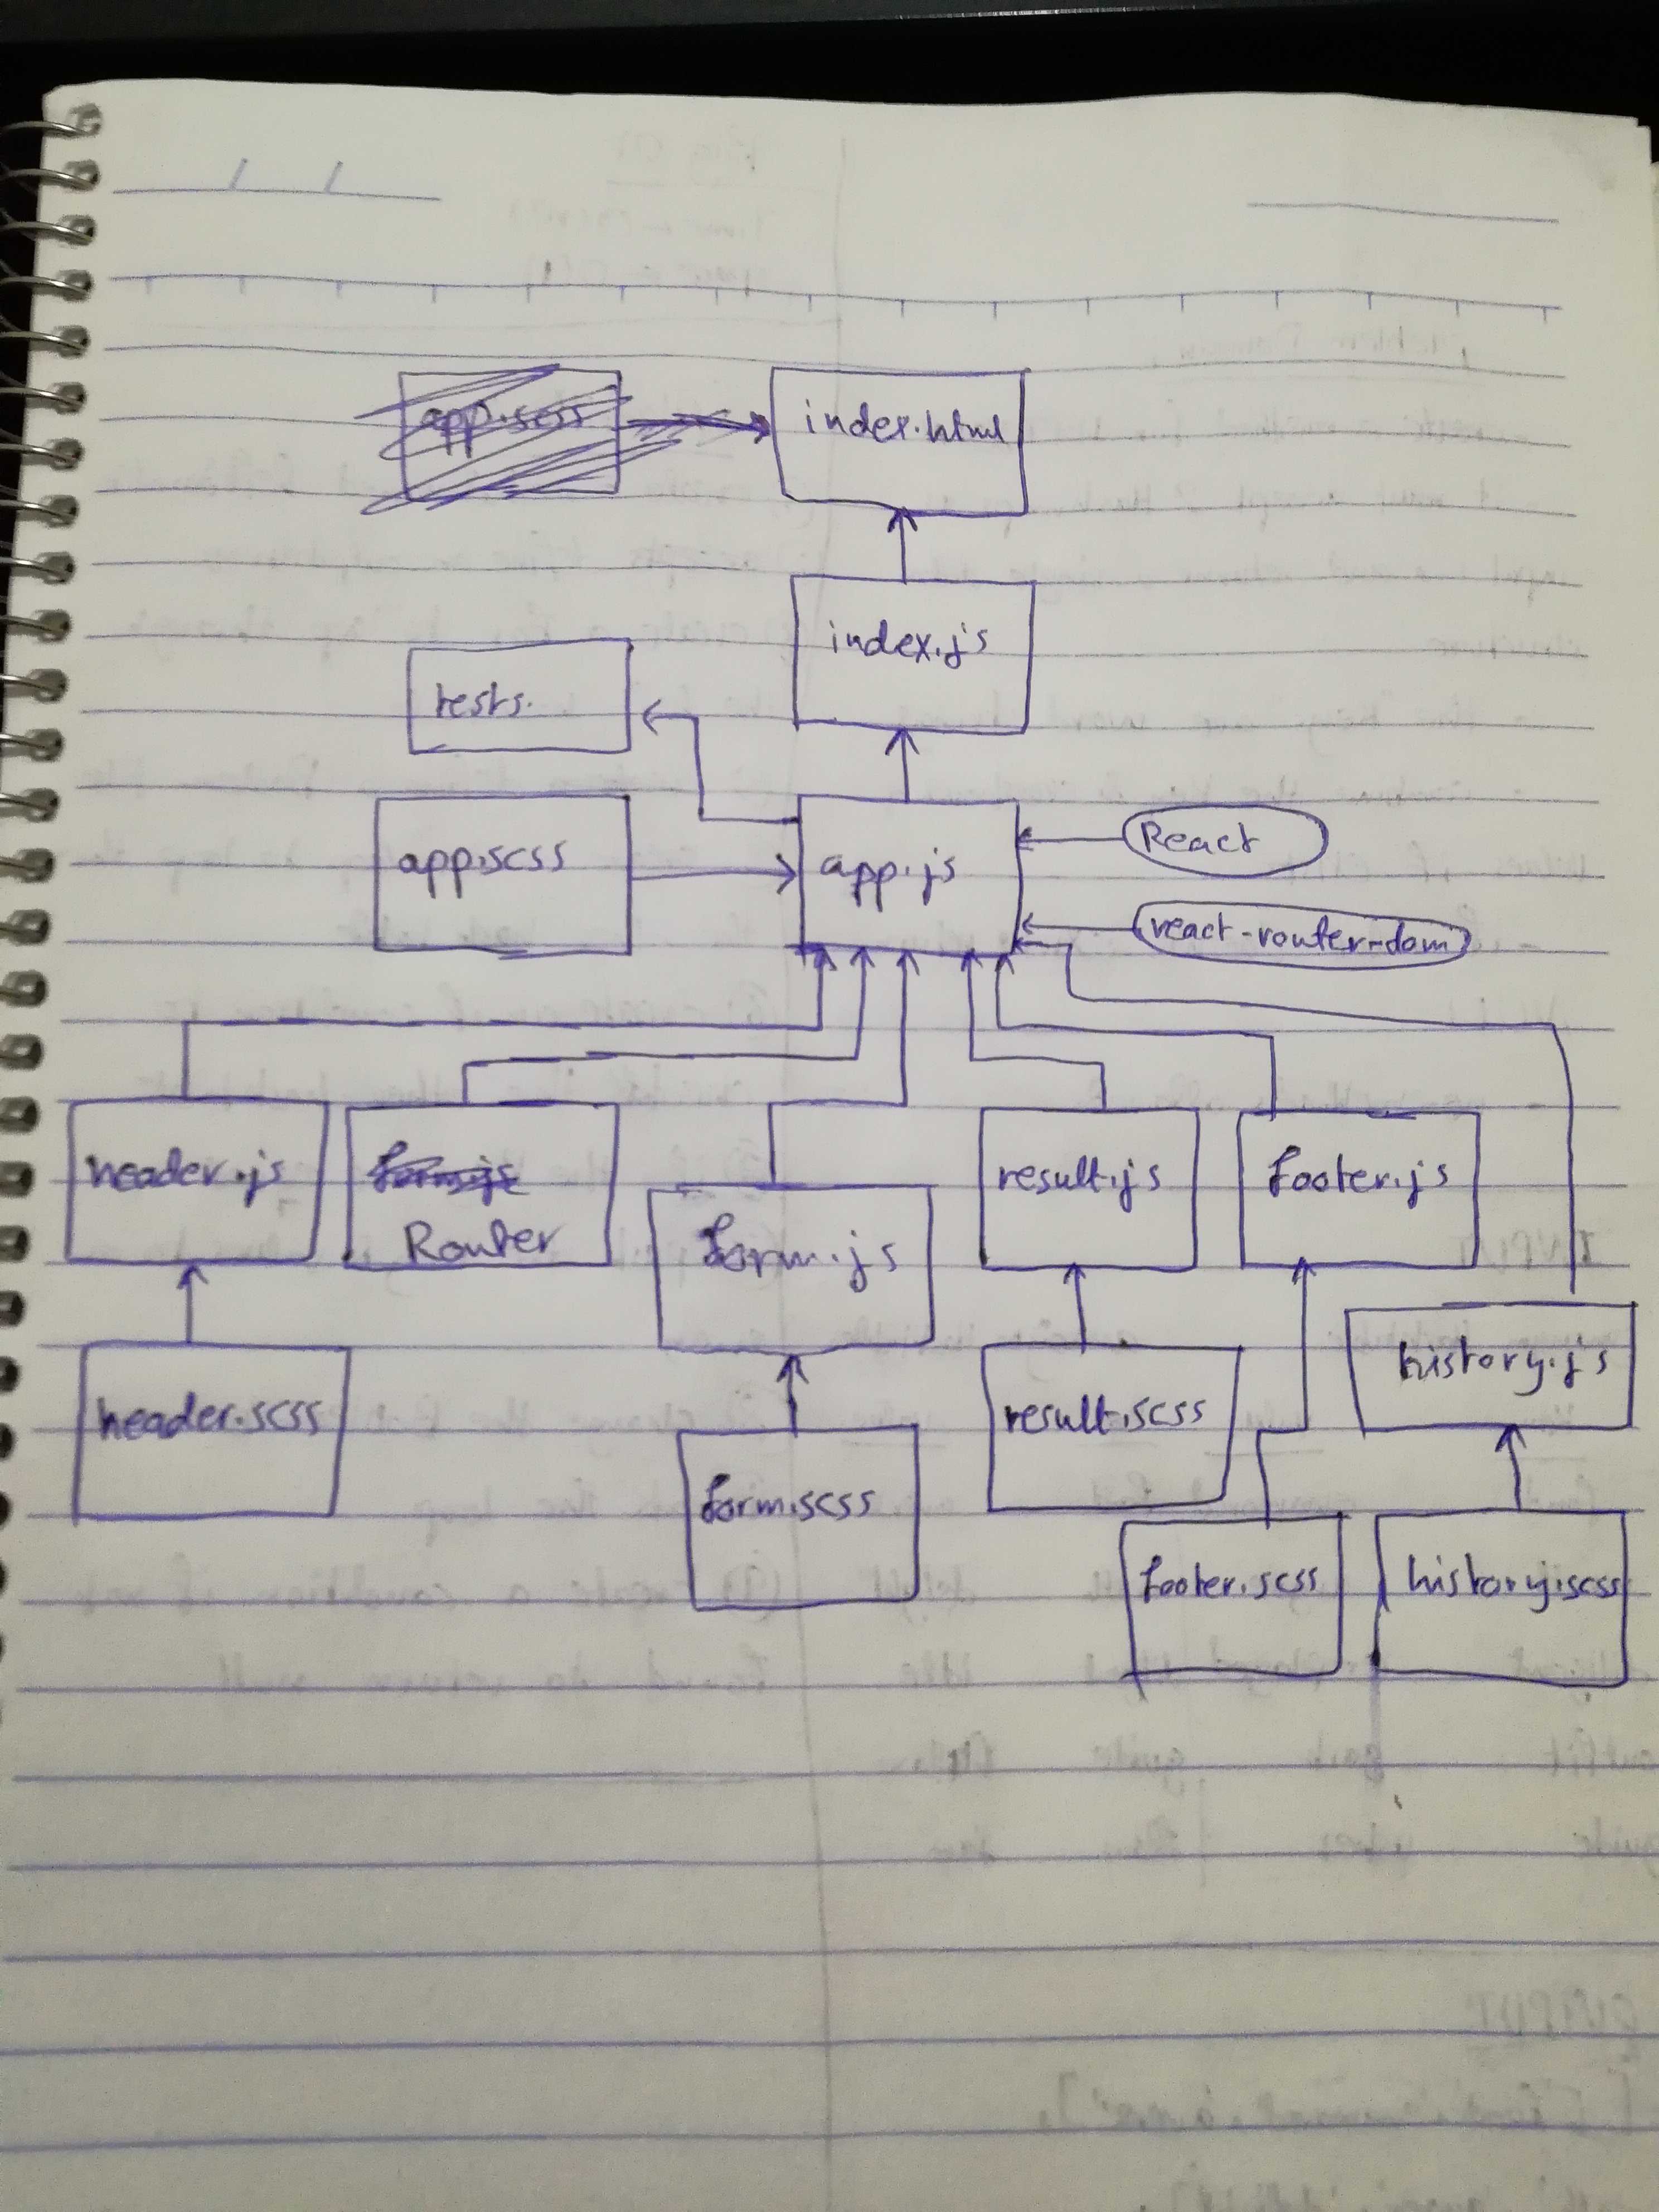 index.html
index.js
tests.
app.scss
app.js
React
react-router-dom
header.js
Router
form.js
result.js
footer.js
history.js
header.scss
form.scss
result.scss
footer.scss
history.scss